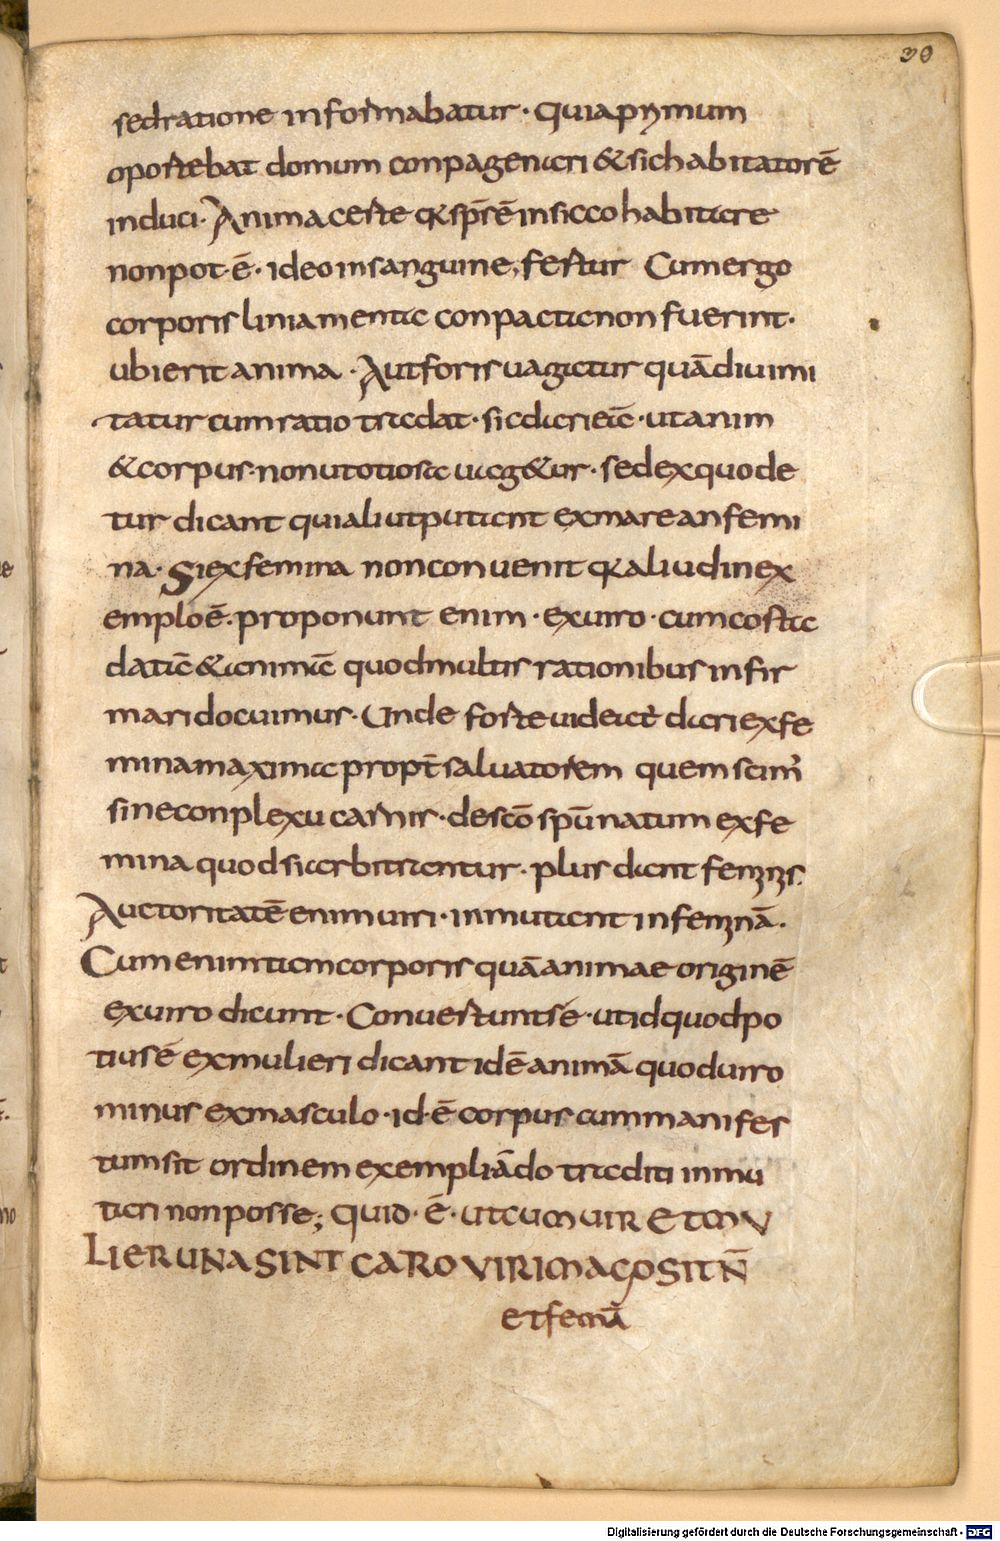 30
sed ratione informabatur · quia prymum
oportebat domum conpagenari & sic habitatorē
induci · Anima certe q̄ sp̄s ē in sicco habitare
non pot ē · ideo in sanguine fertur Cum ergo
corporis liniamenta conpacta non fuerint ·
ubi erit anima · Aut foris vagatur quādiu imi
tatur cum ratio tradat · sic dicri eiē · ut anim
& corpus · non ut otiosa uag&ur · sed ex quo de
tur dicant qui aliut putant ex mare an femi
na · Si ex femina non convenit q̄ aliud in ex
emplo ē · proponunt enim · ex uiro · cum costa
data ē & anima ē quod multis rationibus infir
mari docuimus · Unde forte uideat̄ dicri ex fe
mina maxima propt̄ salvatorem quem scim̄
sine conplexu carnis · de sc̄o sp̄u natum ex fe
mina quod si arbitrantur · plus dant femyys ·
Auctoritatē enim uiri · inmutant in femynā ·
Cum enim tam corporis quā animae originē
ex uiro dicunt · Convertunt sē · ut id quod po
tius ē ex mulieri dicant id ē animā quod uiro
minus ex masculo · id · ē corpus cum manifes
tum sit ordinem exempliādo traditi inmu
tari non posse; quid · ē · ut cum uir et mu
lier una sint caro viri magō sit n̄
et femā
Digitalisierung gefördert durch die Deutsche Forschungsgemeinschaft - DFG